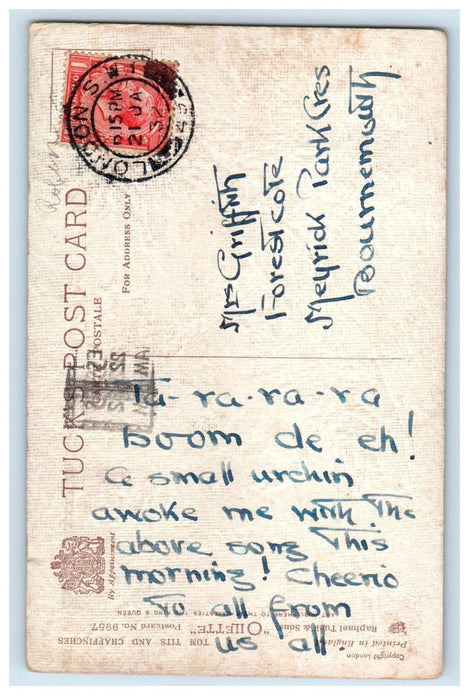 TUCK'S POST CARD
CARTE POSTALE
FOR ADDRESS ONLY
LONDON S.W.1
2 15 PM
21 JA
32
Mrs Griffith
Forestcote
Meyrick Park Cres
Bournemouth
Ta-ra-ra-ra
boom de eh!
A small urchin
awoke me with the
above song this
morning! Cheerio
to all from
us all.
By Appointment
TOM TITS AND CHAFFINCHES
"OILETTE" Postcard No. 9957
Raphael Tuck & Sons
KING & QUEEN
Copyright London
Printed in England